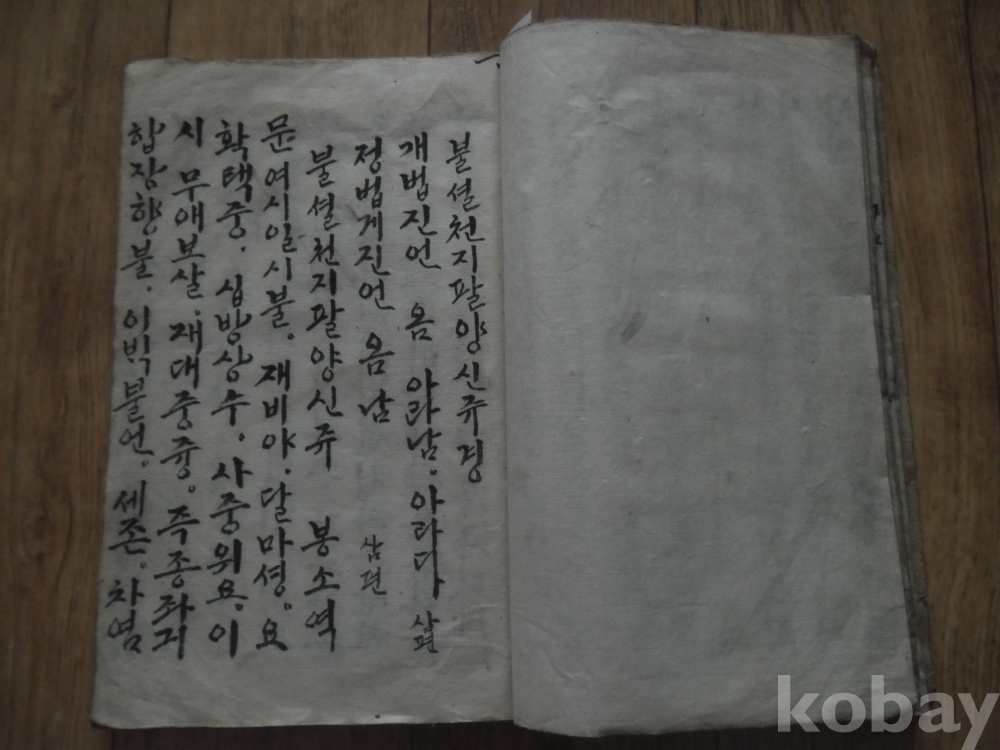 불셜천지팔양신쥬경
개법진언 옴 아라남. 아라다 삼편
정법게진언 옴남 삼편
불셜천지팔양신쥬 봉소역
문여시일시불. 재비야. 달마셩. 요
확택중. 십방상수. 사중위요. 이
시 무애보살. 재대중즁. 즉종좌긔
합장향불. 이빅불언. 세존. 차염
kobay